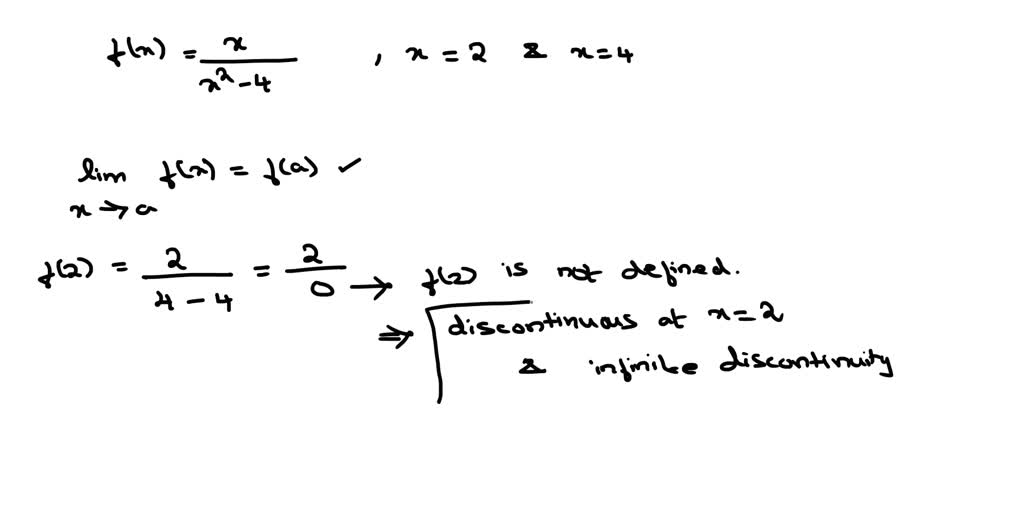 f(x) = x / (x² - 4) , x = 2 & x = 4
lim f(x) = f(a) ✓
x → a
f(2) = 2 / (4 - 4) = 2 / 0 → f(2) is not defined.
⇒ discontinuous at x = 2
& infinite discontinuity